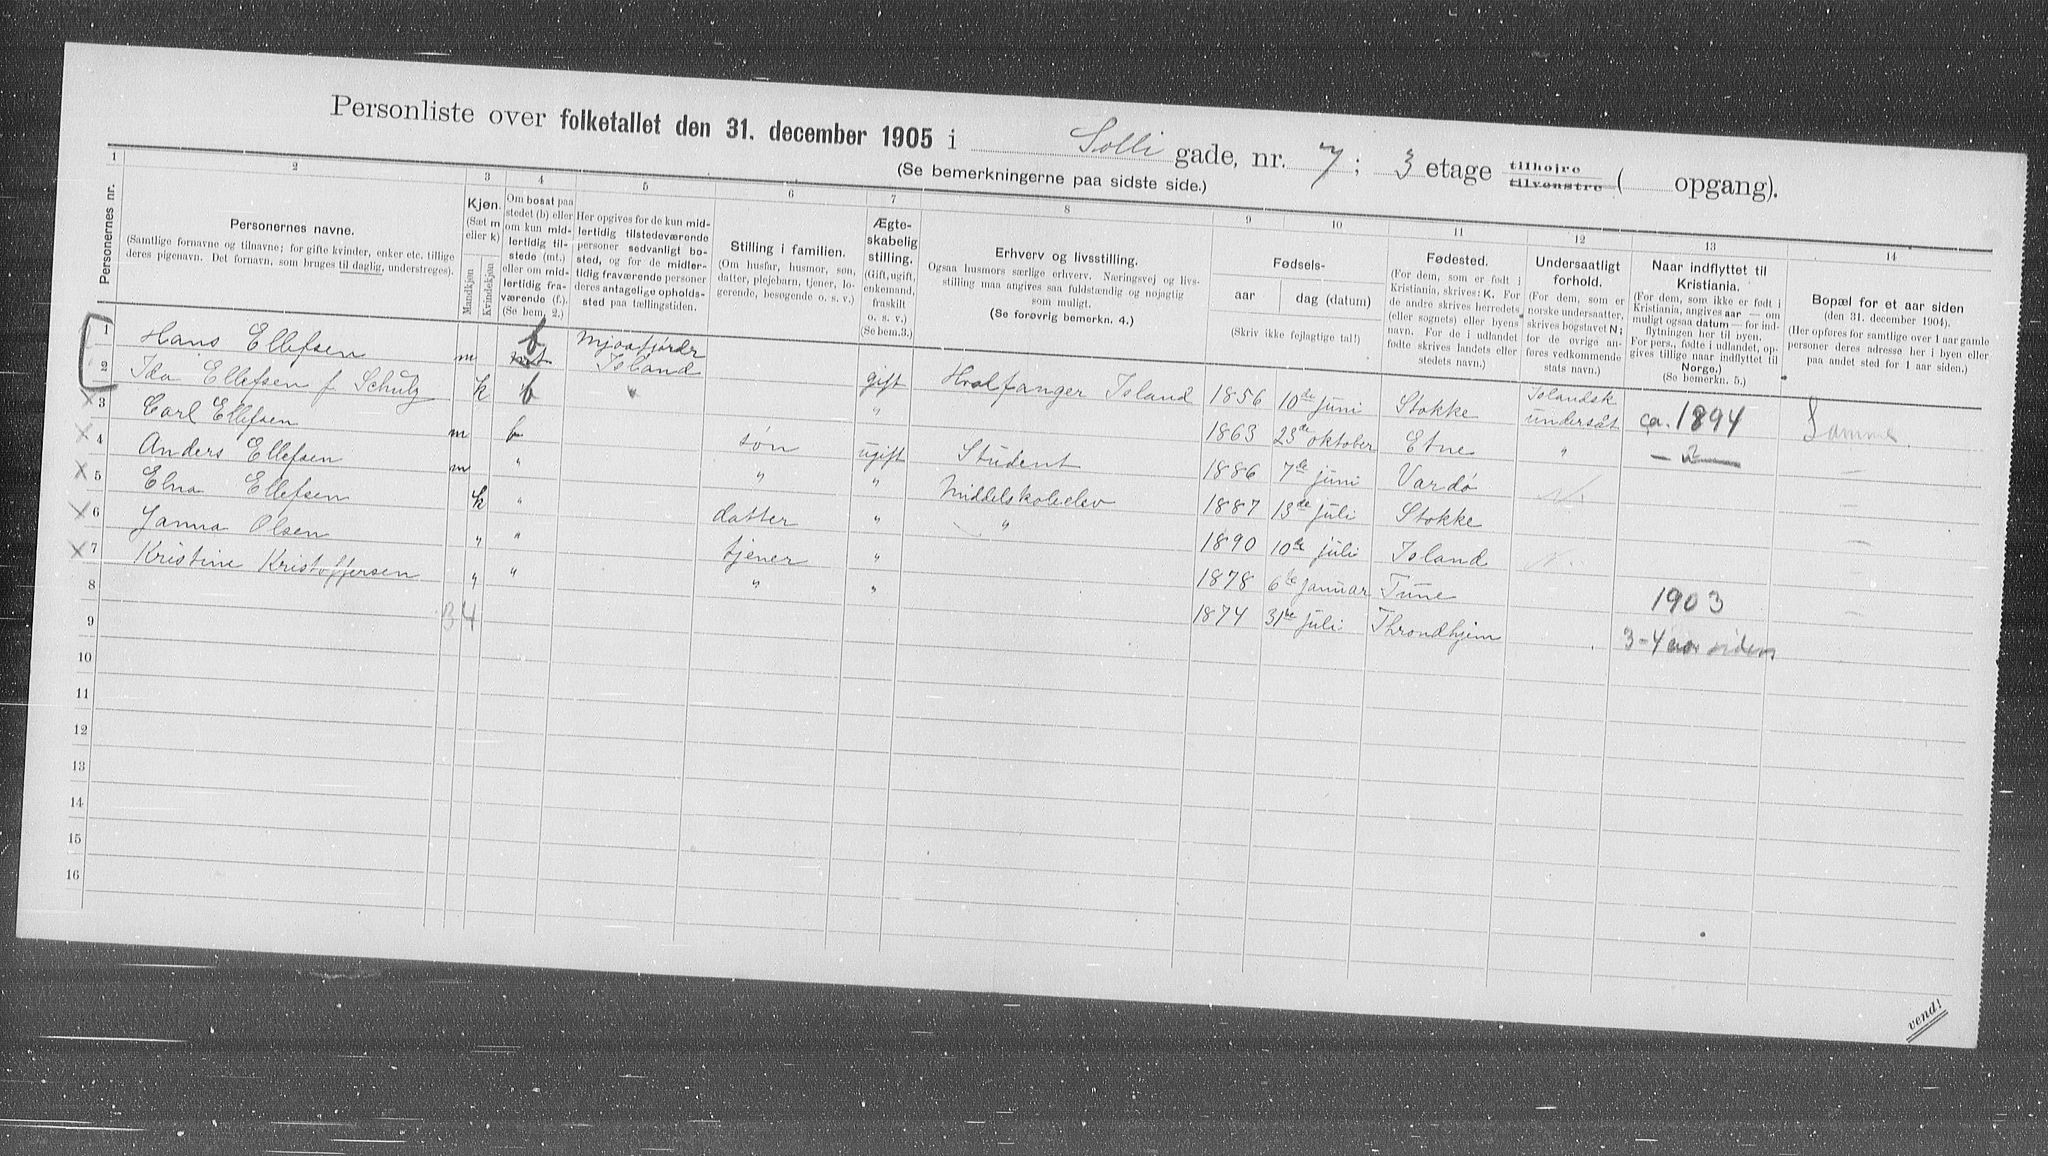 Personliste over folketallet den 31. december 1905 i Solli gade, nr. 7; 3 etage tilhøjre tilvenstre ( opgang).
(Se bemerkningerne paa sidste side.)
1 2 3 4 5 6 7 8 9 10 11 12 13 14
Personernes nr.
Personernes navne.
(Samtlige fornavne og tilnavne; for gifte kvinder, enker etc. tillige
deres pigenavn. Det fornavn, som bruges til daglig, understreges).
Kjøn.
(Sæt m
eller k)
Mandkjøn
Kvindekjøn
Om bosat paa
stedet (b) eller
om kun mid-
lertidig til-
stede (mt.)
eller om mid-
lertidig fra-
værende (f.).
(Se bem. 2.)
Her opgives for de kun mid-
lertidig tilstedeværende
personer sedvanligt bo-
sted, og for de midler-
tidig fraværende personer
deres antagelige opholds-
sted paa tællingstiden.
Stilling i familien.
(Om husfar, husmor, søn,
datter, plejebarn, tjener, lo-
gerende, besøgende o. s. v.)
Ægte-
skabelig
stilling.
(Gift, ugift,
enkemand,
fraskilt
o. s. v.)
(Se bem.3.)
Erhverv og livsstilling.
Ogsaa husmors særlige erhverv. Næringsvej og livs-
stilling maa angives saa fuldstændig og nøjagtig
som muligt.
(Se forøvrig bemerkn. 4.)
Fødsels-
aar dag (datum)
(Skriv ikke fejlagtige tal!)
Fødested.
(For dem, som er født i
Kristiania, skrives: K. For
de andre skrives herredets
(eller sognets) eller byens
navn. For de i udlandet
fødte skrives landets eller
stedets navn.)
Undersaatligt
forhold.
(For dem, som er
norske undersaatter,
skrives bogstavet N;
for de øvrige an-
føres vedkommende
stats navn.)
Naar indflyttet til
Kristiania.
(For dem, som ikke er født i
Kristiania, angives aar — om
muligt ogsaa datum — for ind-
flytningen her til byen.
For pers., fødte i udlandet, op-
gives tillige naar indflyttet til
Norge.)
(Se bemerkn. 5.)
Bopæl for et aar siden
(den 31. december 1904.)
(Her opføres for samtlige over 1 aar gamle
personer deres adresse her i byen eller
paa andet sted for 1 aar siden.)
1 Hans Ellefsen m mt b Mjoafjördr Island gift Hvalfanger Island 1856 10de juni Stokke Islandsk undersåt ca. 1894 Samme
2 Ida Ellefsen f Schulz k b " " 1863 23de oktober Etne " — 2 — —
3 Carl Ellefsen m b søn ugift Student 1886 7de juni Vardö N. —
4 Anders Ellefsen m " " " Middelskoleelev 1887 13de juli Stokke —
5 Elna Ellefsen k " datter " " 1890 10de juli Island N. —
6 Janna Olsen " " tjener " 1878 6te januar Tune 1903 —
7 Kristine Kristoffersen " " " " 1874 31te juli Throndhjem 3-4 aar siden
8
34
9
10
11
12
13
14
15
16
vend!